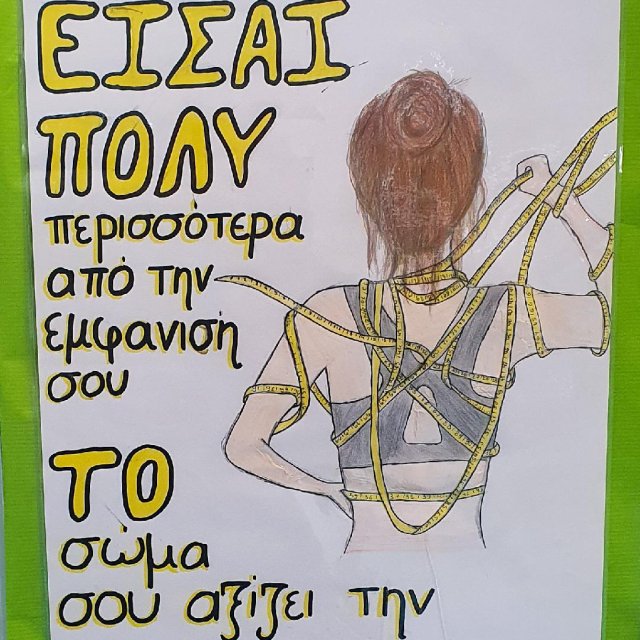 ΕΙΣΑΙ
ΠΟΛΥ
περισσότερα
από την
εμφανιση
σου
ΤΟ
σώμα
σου αξίζει την